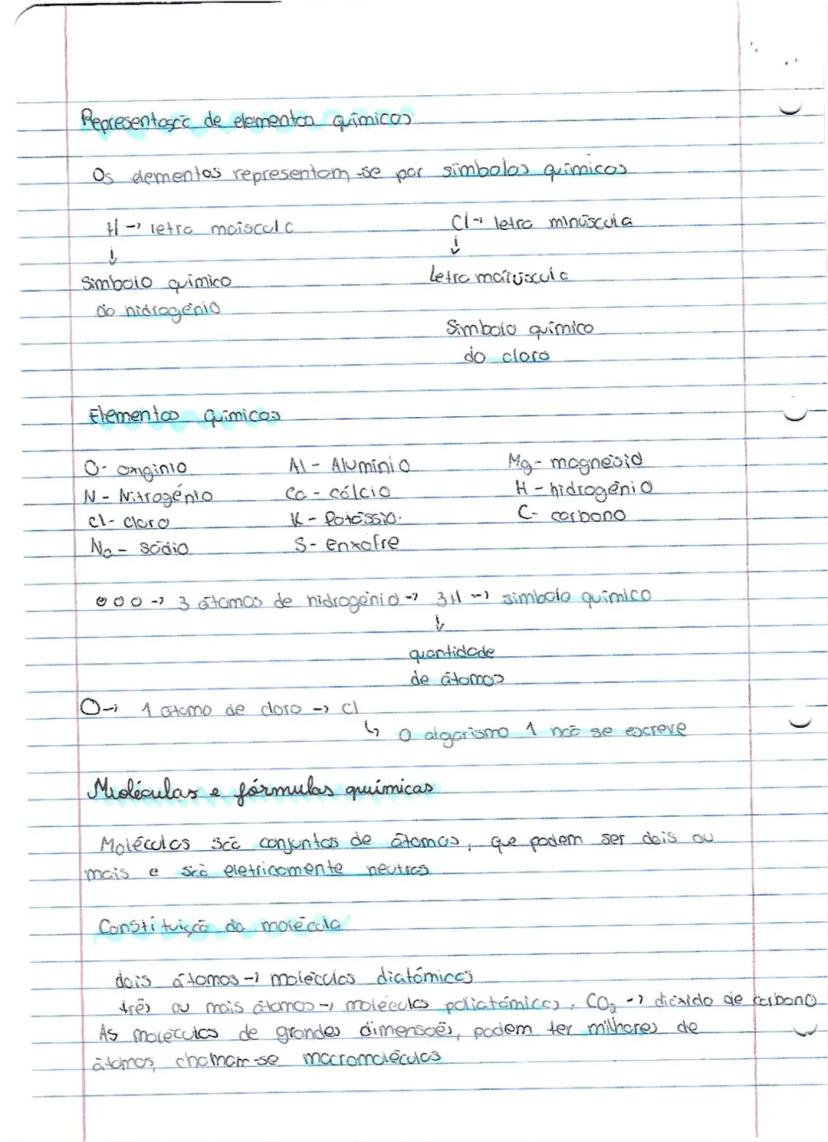 Representação de elementos químicos
Os elementos representam-se por símbolos químicos
H → letra maiscula
Cl → letra minúscula
↓
↓
Símbolo químico
Letra maiúscula
do hidrogénio
Símbolo químico
do cloro
Elementos químicos
O - oxigínio
Al - Alumínio
Mg - magnésio
N - Nitrogénio
Ca - cálcio
H - hidrogénio
Cl - cloro
K - Potássio.
C - carbono
Na - sódio
S - enxofre
→ 3 átomos de hidrogénio → 3H → símbolo químico
↓
quantidade
de átomos
→ 1 átomo de cloro → Cl
↳ o algarismo 1 não se escreve
Moléculas e fórmulas químicas
Moléculas são conjuntos de átomos, que podem ser dois ou
mais e são eletricamente neutros
Constituição da molécula
dois átomos → moléculas diatómicas
três ou mais átomos → moléculas poliatómicas, CO₂ → dióxido de carbono
As moléculas de grandes dimensões, podem ter milhares de
átomos, chamam-se macromoléculas